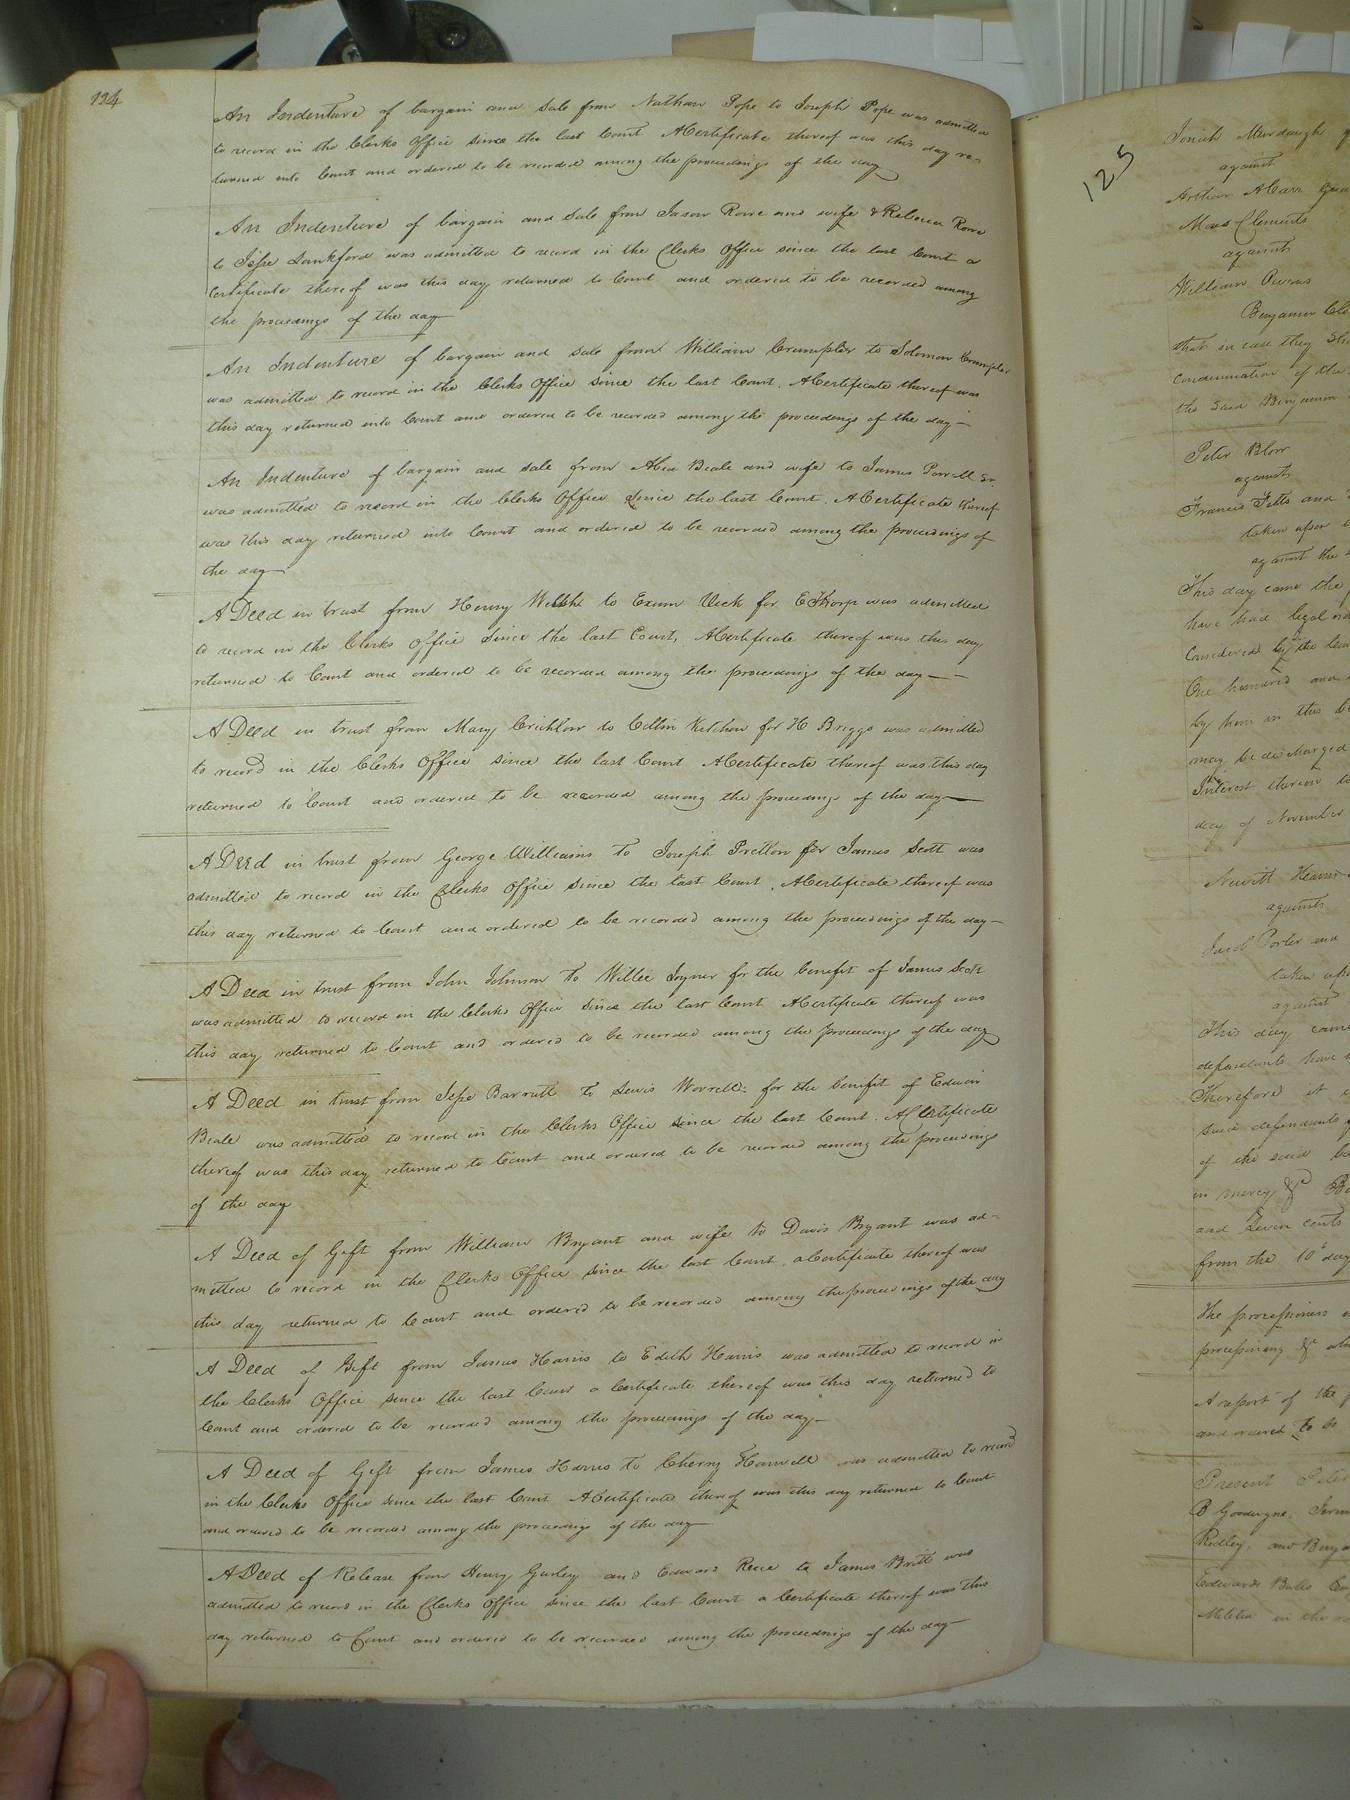 124
An Indenture of bargain and sale from Nathan Pope to Joseph Pope was admitted
to record in the Clerks Office since the last Court A Certificate thereof was this day re-
turned into Court and ordered to be recorded among the proceedings of the day
An Indenture of bargain and sale from Jason Rowe and wife & Rebecca Rowe
to Jesse Lankford was admitted to record in the Clerks Office since the last Court a
Certificate thereof was this day returned to Court and ordered to be recorded among
the proceedings of the day
An Indenture of bargain and sale from William Crumpler to Solomon Crumpler
was admitted to record in the Clerks Office since the last Court. A Certificate thereof was
this day returned into Court and ordered to be recorded among the proceedings of the day
An Indenture of bargain and sale from Beale and wife to James Powell Sr
was admitted to record in the Clerks Office since the last Court. A Certificate thereof
was this day returned into Court and ordered to be recorded among the proceedings of
the day
A Deed in trust from Henry to Exum Vick for E Thorp was admitted
to record in the Clerks Office since the last Court, A Certificate thereof was this day
returned to Court and ordered to be recorded among the proceedings of the day
A Deed in trust from Mary Crichlow to Collin Kitchen for H Briggs was admitted
to record in the Clerks Office since the last Court A Certificate thereof was this day
returned to Court and ordered to be recorded among the proceedings of the day
A Deed in trust from George Williams to Joseph Pretlow for James Scott was
admitted to record in the Clerks Office since the last Court. A Certificate thereof was
this day returned to Court and ordered to be recorded among the proceedings of the day
A Deed in trust from John Johnson to Willie Joyner for the benefit of James Scott
was admitted to record in the Clerks Office since the last Court A Certificate thereof was
this day returned to Court and ordered to be recorded among the proceedings of the day
A Deed in trust from Jesse Barrett to Lewis Worrell for the benefit of Edwin
Beale was admitted to record in the Clerks Office since the last Court. A Certificate
thereof was this day returned to Court and ordered to be recorded among the proceedings
of the day
A Deed of Gift from William Bryant and wife to Davis Bryant was ad-
mitted to record in the Clerks Office since the last Court. a Certificate thereof was
this day returned to Court and ordered to be recorded among the proceedings of the day
A Deed of Gift from James Harris to Edith Harris was admitted to record in
the Clerks Office since the last Court a Certificate thereof was this day returned to
Court and ordered to be recorded among the proceedings of the day
A Deed of Gift from James Harris to Cherry Harwell was admitted to record
in the Clerks Office since the last Court A Certificate thereof was this day returned to Court
and ordered to be recorded among the proceedings of the day
A Deed of Release from Henry Gurley and Edward Reese to James Britt was
admitted to record in the Clerks Office since the last Court a Certificate thereof was this
day returned to Court and ordered to be recorded among the proceedings of the day
125
Josiah Murdaugh
against
Arthur A Carr
Clements
against
William Owens
Benjamin
that in case they
Condemnation of the
the said Benjamin
Peter Blow
against
Francis Felts and
taken upon
against the
This day came the
have had legal
Considered by the
One hundred and
by him in this
may be discharged
Interest thereon
day of November
against
Jacob Porter and
taken
against
This day came
defendants have
Therefore it
said defendants
of the said
in mercy &c
and Seven cents
from the 10th day
The processioners
processioning &
A report of the
and ordered to be
Present Peter
B Goodwyne,
Ridley, and
Edwards
Militia in the